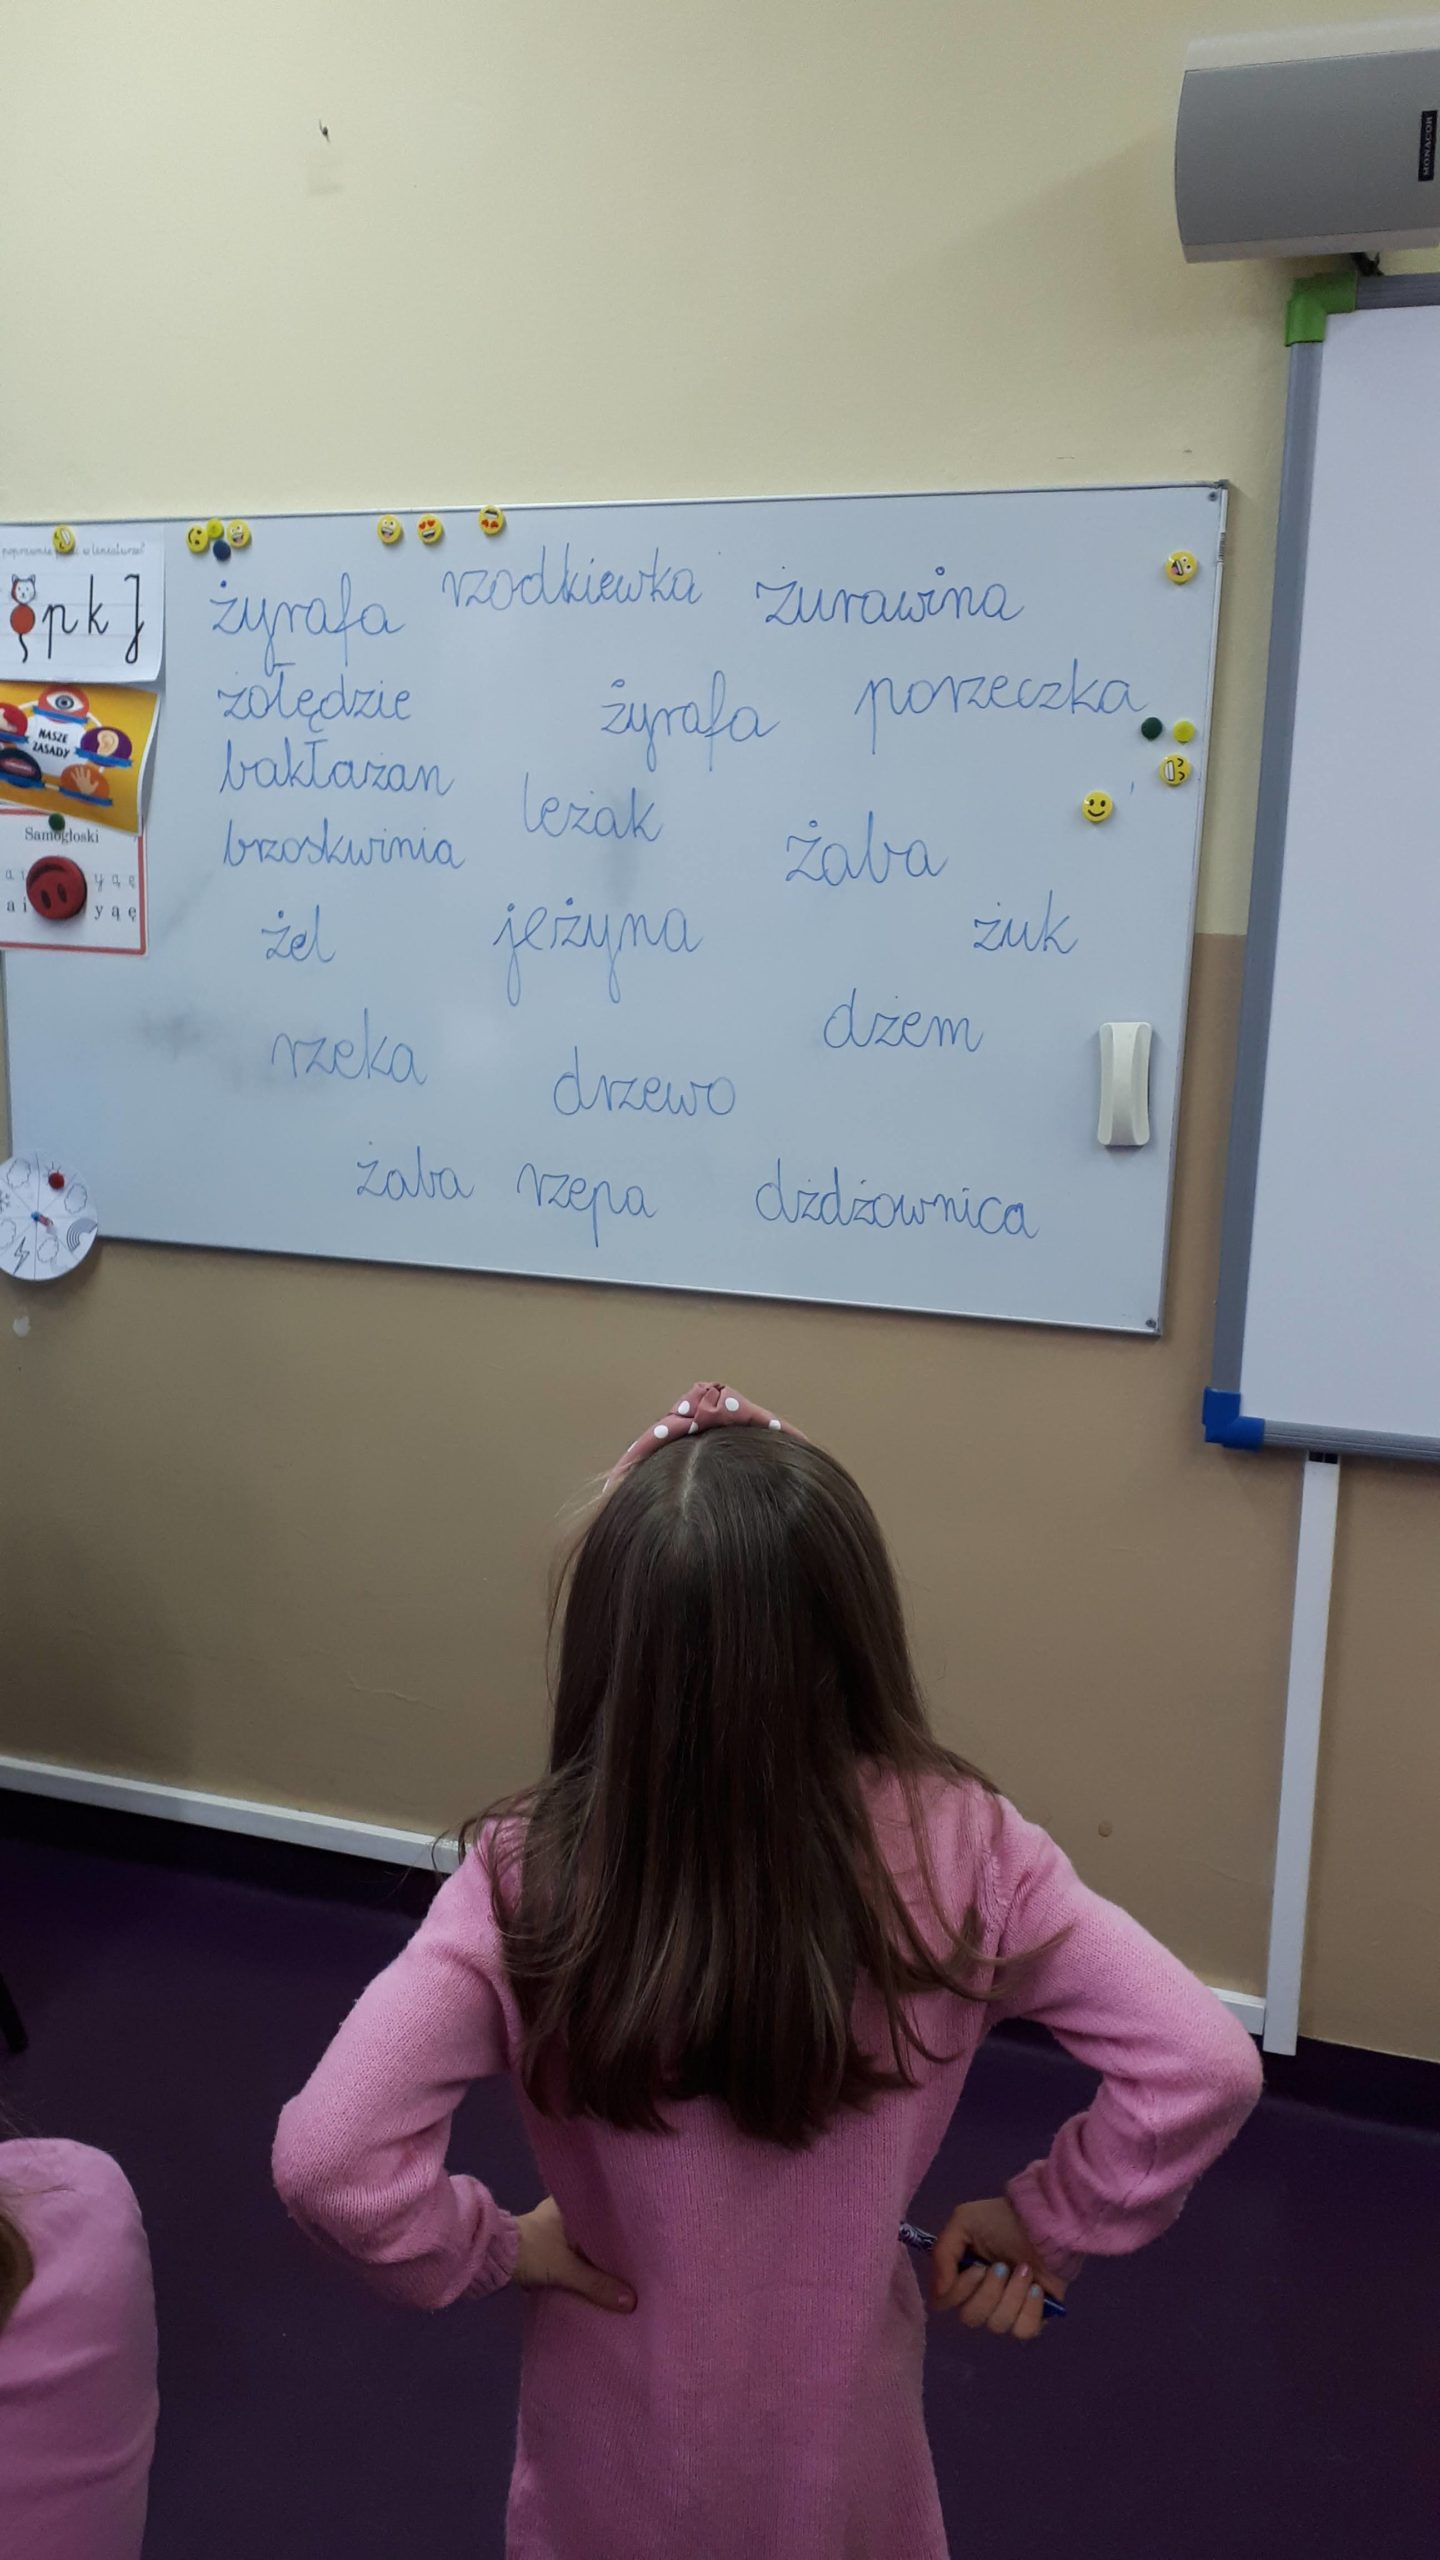 MONACOR
żyrafa rzodkiewka żurawina
żołędzie żyrafa porzeczka
bakłażan leżak
brzoskwinia żaba
żel jeżyna żuk
rzeka drzewo dżem
żaba rzepa dżdżownica
p k J
NASZE
ZASADY
Samogłoski
a i y ą ę
a i y ą ę